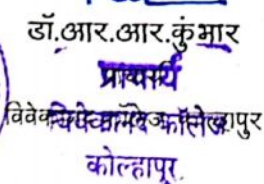 डॉ.आर.आर.कुंभार
प्राचार्य
विवेकानंद कॉलेज, कोल्हापुर
कोल्हापुर.